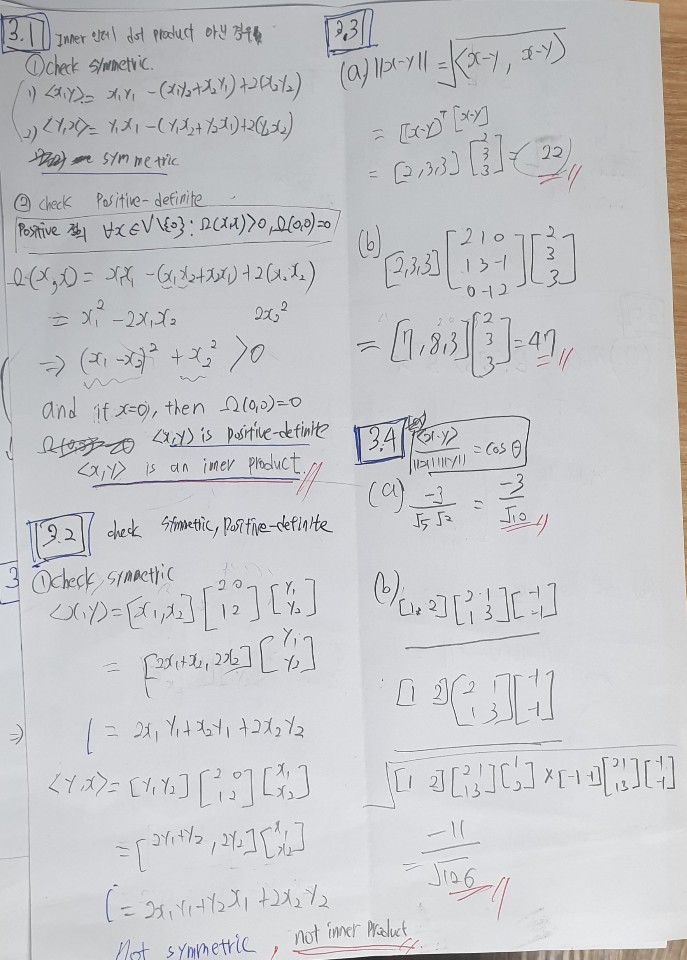 3.1 Inner 인데 dot product 아닌 경우
① check symmetric.
1) <x,y> = x₁y₁ - (x₁y₂+x₂y₁) + 2(x₂y₂)
2) <y,x> = y₁x₁ - (y₁x₂+y₂x₁) + 2(y₂x₂)
symmetric
② check Positive-definite
Positive 정의 ∀x∈V\{0} : Ω(x,x)>0, Ω(0,0)=0
Ω(x,x) = x₁x₁ - (x₁x₂+x₂x₁) + 2(x₂x₂)
= x₁² - 2x₁x₂ 2x₂²
⇒ (x₁-x₂)² + x₂² > 0
and if x=0, then Ω(0,0)=0
<x,y> is positive-definite
<x,y> is an inner product.
3.2 check symmetric, Positive-definite
① check symmetric
<x,y> = [x₁,x₂] [2 0
1 2] [y₁
y₂]
= [2x₁+x₂, 2x₂] [y₁
y₂]
= 2x₁y₁+x₂y₁+2x₂y₂
<y,x> = [y₁ y₂] [2 0
1 2] [x₁
x₂]
= [2y₁+y₂, 2y₂] [x₁
x₂]
= 2x₁y₁+y₂x₁+2x₂y₂
Not symmetric, not inner product
3
⇒
3.3
(a) ||x-y|| = √<x-y, x-y>
= [x-y]ᵀ [x-y]
= [2,3,3] [2
3
3] = 22
(b) [2,3,3] [2 1 0
1 3 -1
0 -1 2] [2
3
3]
= [7,8,3] [2
3
3] = 47
3.4 <x·y>
||x|| ||y|| = cos θ
(a) -3
√5 √2 = -3
√10
(b) [1 2] [2 1
1 3] [-1
-1]
[1 2] [2 1
1 3] [-1
-1]
√[1 2] [2 1
1 3] [1
2] × [-1 -1] [2 1
1 3] [-1
-1]
= -11
√126